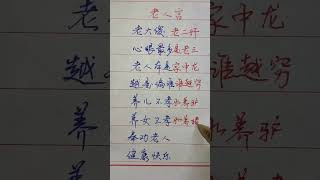 老人言
老大傻 老二奸
心眼最多是老三
老人本是家中龙
越是偏谁谁越穷
养儿不孝如养驴
养女不孝如养
奉劝老人
健康快乐